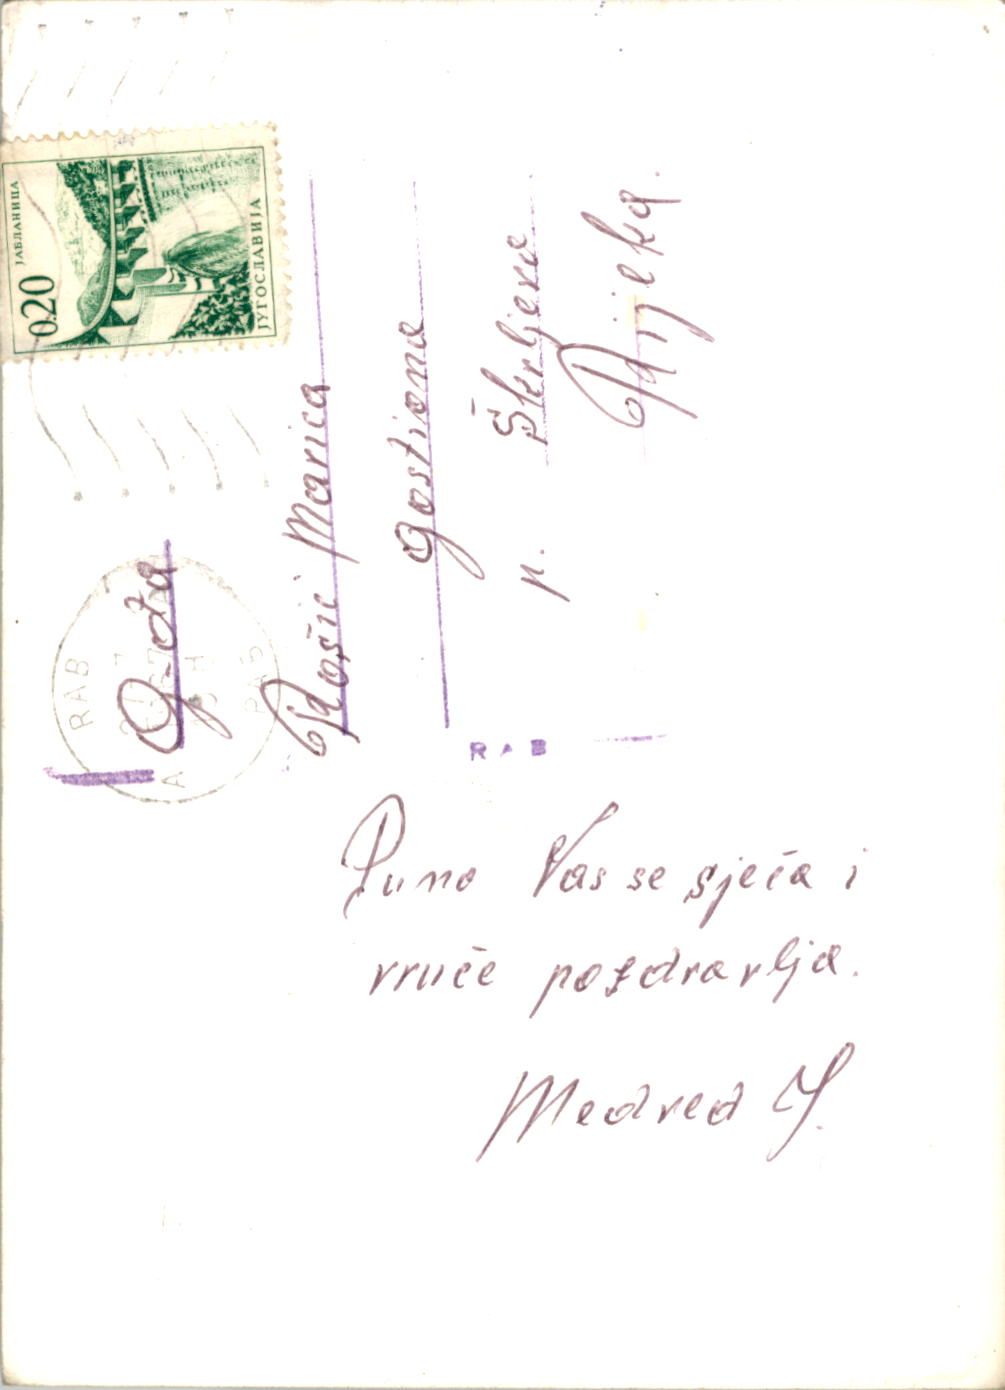 ЈАБЛАНИЦА
0.20
ЈУГОСЛАВИЈА
RAB
RAB
G-đa
Rošić Marica
Gostiona
p. Škrljevo
Rijeka.
RAB
Puno Vas se sjeća i
vruće pozdravlja.
Medved